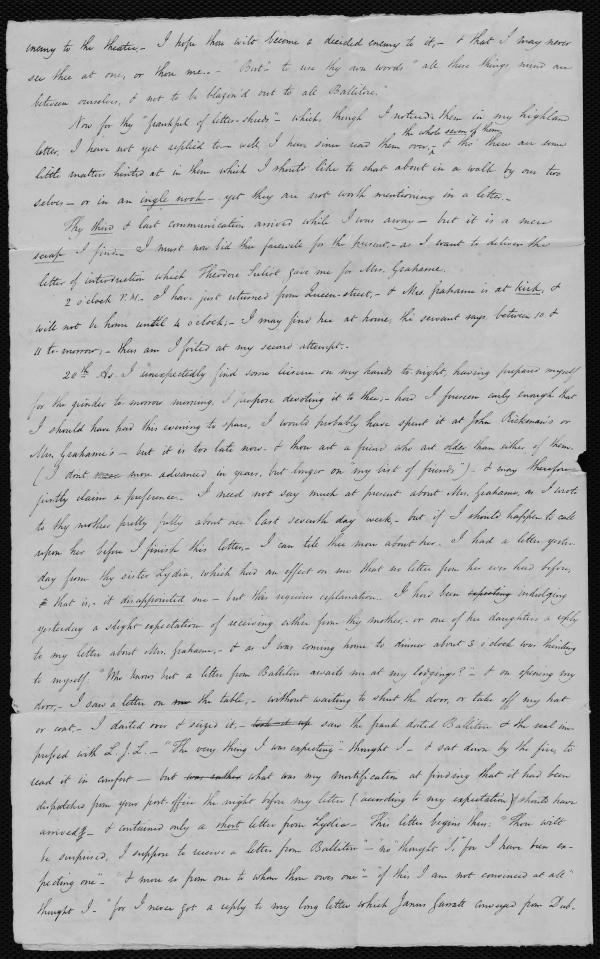 enemy to the theatre,- I hope thou wilt become a decided enemy to it,- & that I may never
see thee at one, or thou me.- "But" to use thy own words "all these things mind are
between ourselves, & not to be blazon'd out to all Ballitore."
Now for thy "frankful of letter-shreds"- which, though I noticed them in my highland
letter, I have not yet replied to- well, I have since read them over, & tho' there are some
the whole seven of them
little matters hinted at in them which I should like to chat about in a walk by our two
selves- or in an ingle nook- yet they are not worth mentioning in a letter.-
Thy third & last communication arrived while I was away- but it is a mere
scrap I find- I must now bid thee farewell for the present,- as I want to deliver the
letter of introduction which Theodore Suliot gave me for Mrs. Grahame.
2 o'clock P.M.- I have just returned from Queen-street,- & Mrs Grahame is at kirk, &
will not be home until 4 o'clock;- I may find her at home, the servant says between 10 &
11 to-morrow,- thus am I foiled at my second attempt.-
20th As I unexpectedly find some leisure on my hands to-night, having prepared myself
for the grinder to-morrow morning, I propose devoting it to thee;- had I foreseen early enough that
I should have had this evening to spare, I would probably have spent it at John Rickman's or
Mrs Grahame's- but it is too late now- & thou art a friend who art older than either of them.
(I don't mean more advanced in years, but longer on my list of friends)- & may therefore
justly claim a preference. I need not say much at present about Mrs. Grahame, as I wrote
to thy mother pretty fully about her last seventh day week,- but if I should happen to call
upon her before I finish this letter,- I can tell thee more about her. I had a letter yester-
day from thy sister Lydia, which had an effect on me that no letter from her ever had before,
& that is,- it disappointed me- but this requires explanation. I had been expecting indulging
yesterday a slight expectation of receiving either from thy mother,- or one of her daughters a reply
to my letter about Mrs. Grahame,- & as I was coming home to dinner about 3 o'clock was thinking
to myself, "Who knows but a letter from Ballitore awaits me at my lodgings?"- & on opening my
door,- I saw a letter on the table,- without waiting to shut the door, or take off my hat
or coat,- I darted over & seized it,- took it up saw the frank dated Ballitore & the seal im-
pressed with L.J.L.- "The very thing I was expecting" thought I- & sat down by the fire, to
read it in comfort- but what was my mortification at finding that it had been
dispatched from your post-office the night before my letter (according to my expectation) should have
arrived- & contained only a short letter from Lydia- This letter begins thus: "Thou wilt
be surprised, I suppose to receive a letter from Ballitore"- "no" thought I, "for I have been ex-
pecting one"- "& more so from one to whom thou owes one"- "of this I am not convinced at all"
thought I- "for I never got a reply to my long letter which James Garratt conveyed from Dub-